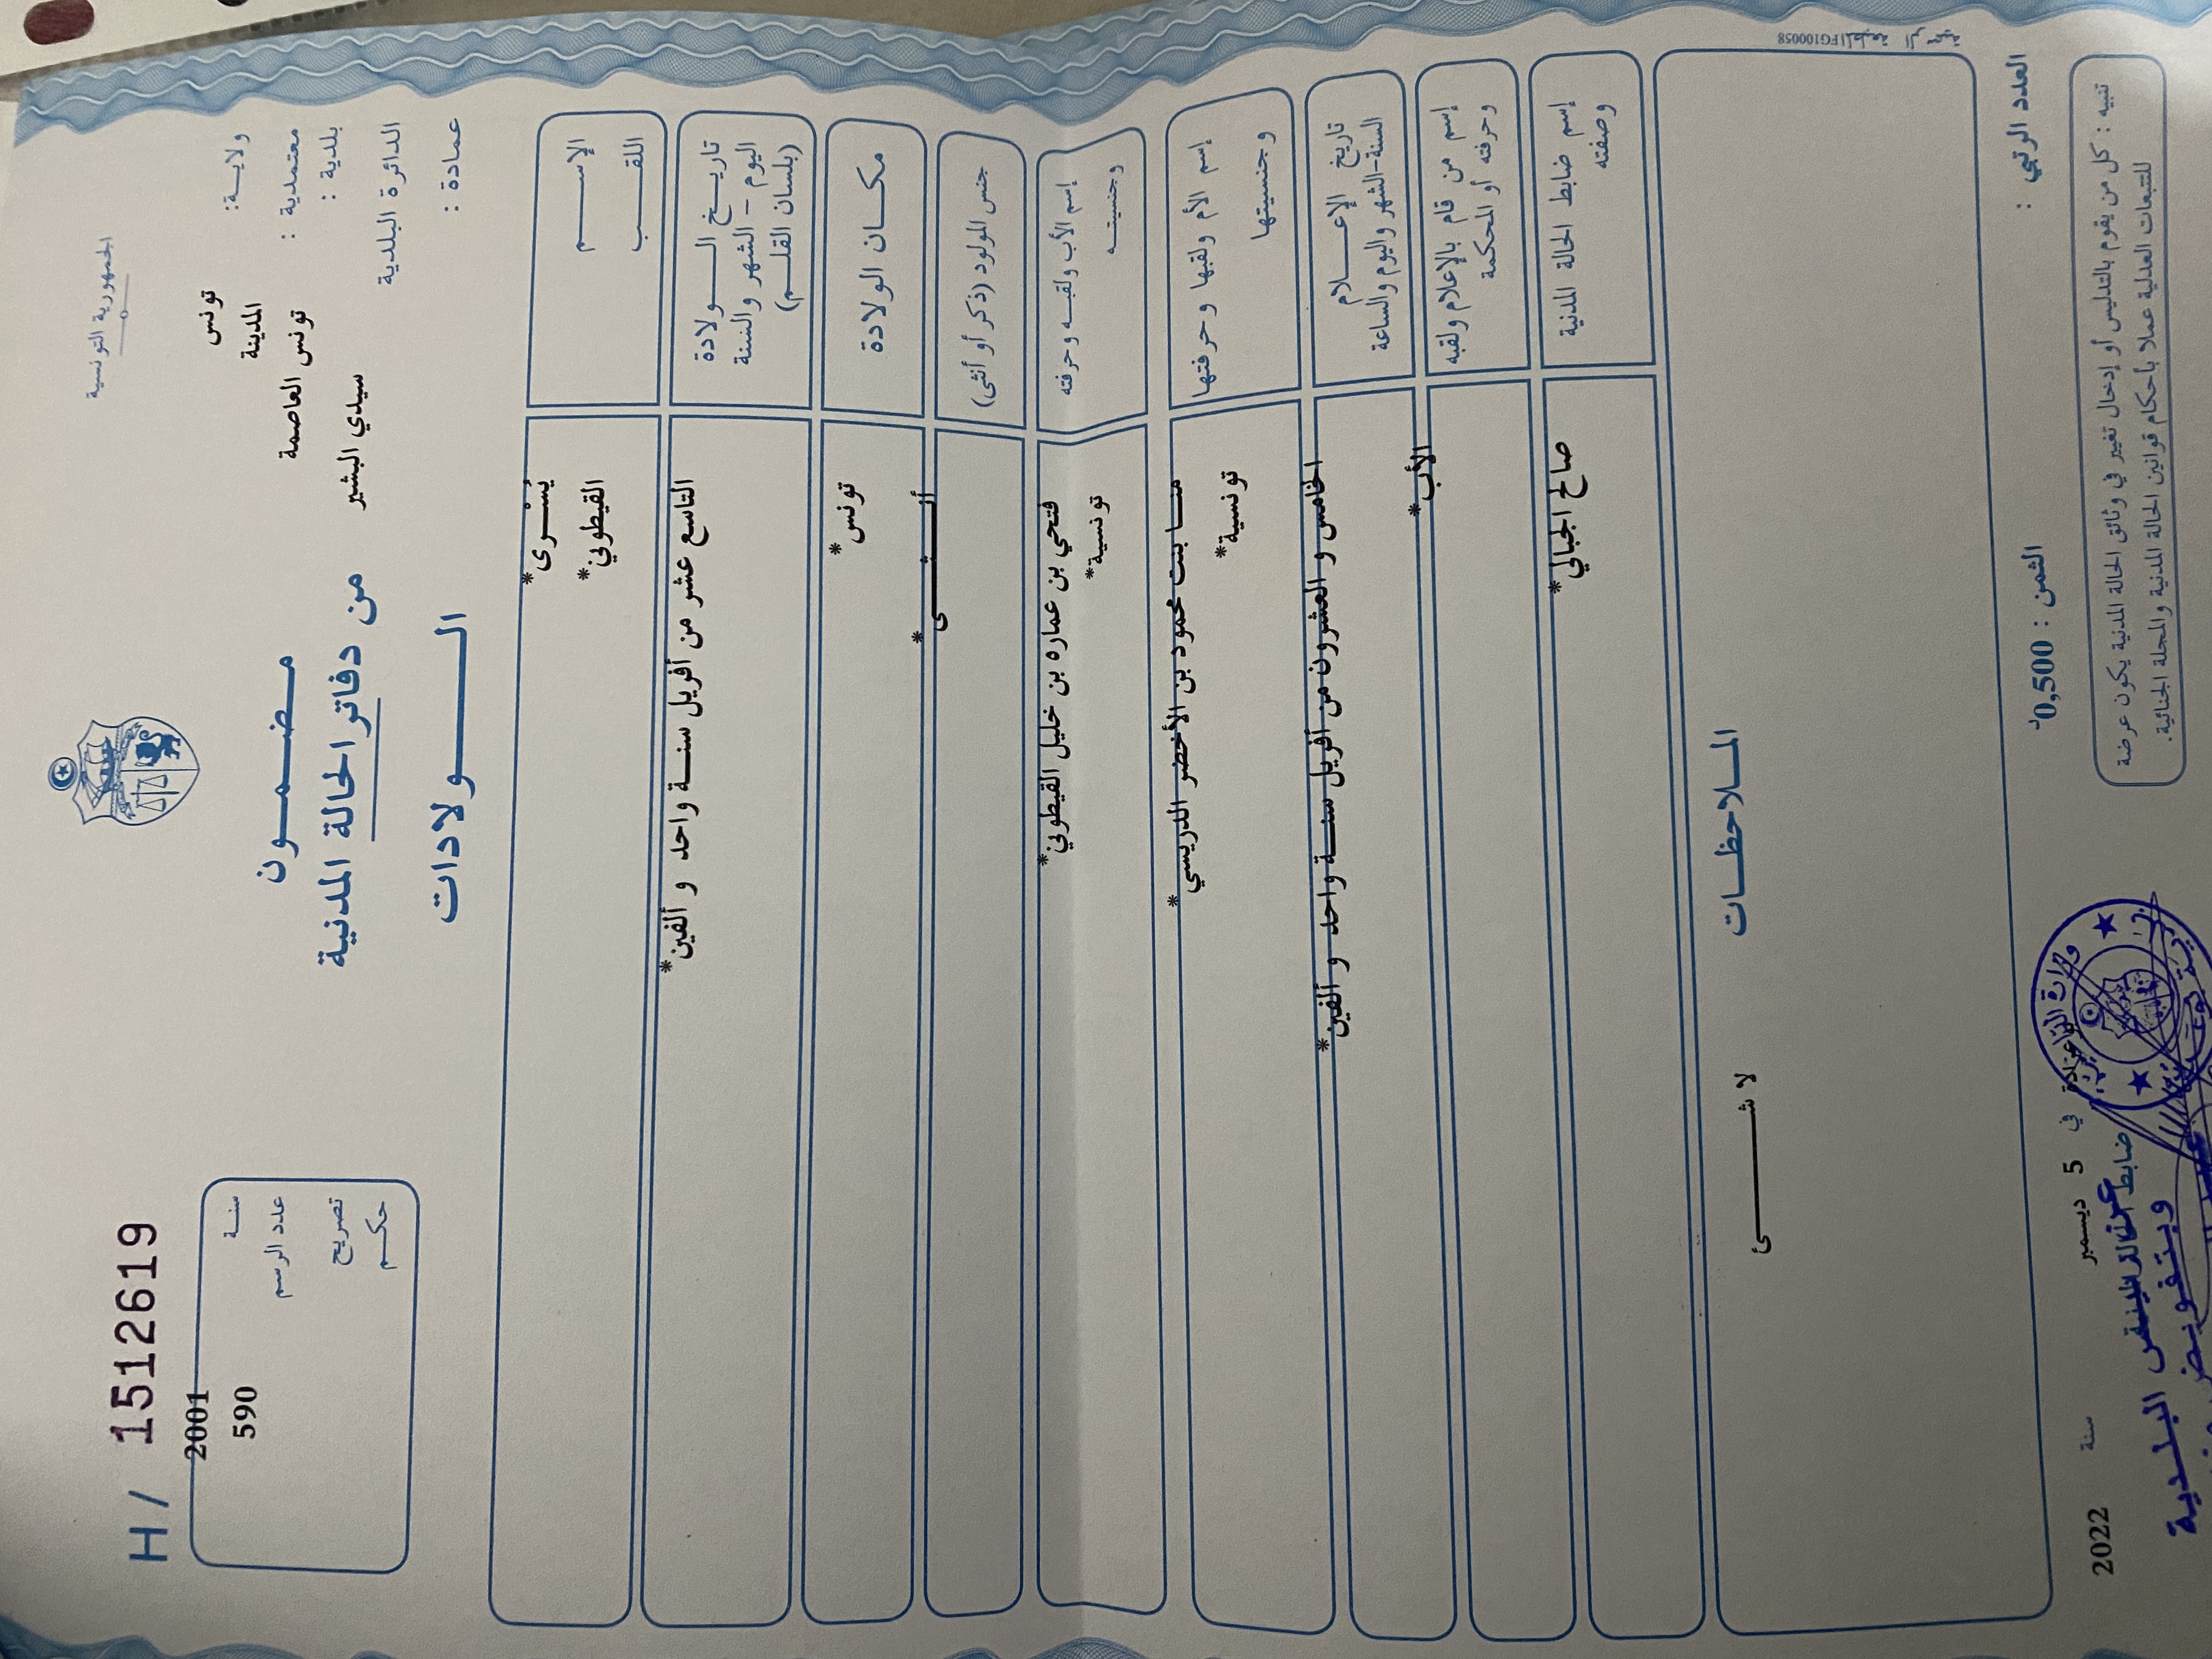 الجمهورية التونسية
H/ 1512619
ولايـــة: تونس
معتمدية : المدينة
بلدية : تونس العاصمة
الدائرة البلدية سيدي البشير
عمادة :
مضمـــون
من دفاتر الحالة المدنية
الـــولادات
سنـة 2001
عدد الرسم 590
تصريح
حكـم
الإســـم يُسْـــرى*
اللقـــب القيطوني*
تاريـــخ الـــولادة
اليوم - الشهر والسنة
(بلسان القلـــم)
التاسع عشر من أفريل سنـــة واحد و ألفين*
مكـــان الولادة تونس*
جنس المولود (ذكر أو أنثى) أنـــثـــى*
إسم الأب ولقبـه وحرفته فتحي بن عماره بن خليل القيطوني*
وجنسيتـه تونسية*
إسم الأم ولقبها وحرفتها منـــا بنت محمود بن الأخضر الدريسي*
وجنسيتها تونسية*
تاريخ الإعـــلام
السنة-الشهر واليوم والساعة
الخامس و العشرون من أفريل سنـــة واحد و ألفين*
إسم من قام بالإعلام ولقبه
وحرفته أو المحكمة
الأب*
إسم ضابط الحالة المدنية
وصفته
صالح الجبالي*
الملاحظـات
لا شـــــئ
المطبعة الرسمية FG100058
العدد الرتبي :
الثمن : 0,500د
في 5 ديسمبر سنة 2022
تنبيه : كل من يقوم بالتدليس أو إدخال تغيير في وثائق الحالة المدنية يكون عرضة
للتتبعات العدلية عملا بأحكام قوانين الحالة المدنية والمجلة الجنائية.
ضابط الحالة المدنية
البلدية
وبتفويض